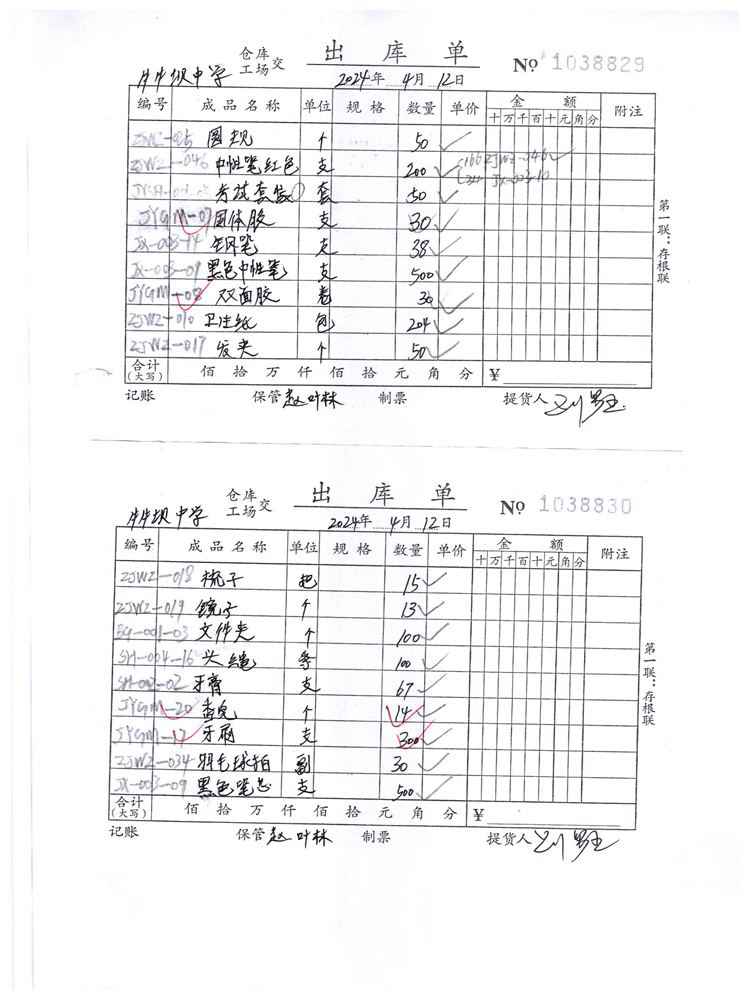 仓库
工场 交 出库单 No 1038829
中学 2024年 4月 12日
编号 成品名称 单位 规格 数量 单价 金额 附注
十万千百十元角分
圆规 个 50
ZJWZ-046 中性笔红色 支 200
考试套装① 套 50
JYGM-07 固体胶 支 30
JX-003-14 钢笔 支 38
JX-003-01 黑色中性笔 支 500
JYGM-08 双面胶 卷 30
ZJWZ-010 卫生纸 包 204
ZJWZ-017 发夹 个 50
合计(大写) 佰拾万仟佰拾元角分 ¥
记账 保管 赵叶林 制票 提货人
第一联:存根联
仓库
工场 交 出库单 No 1038830
中学 2024年 4月 12日
编号 成品名称 单位 规格 数量 单价 金额 附注
十万千百十元角分
ZJWZ-018 梳子 把 15
ZJWZ-019 镜子 个 13
文件夹 个 100
SH-004-16 头绳 条 100
牙膏 支 67
JYGM-20 香皂 个 14
JYGM-17 牙刷 支 300
ZJWZ-034 羽毛球拍 副 30
JX-003-09 黑色笔芯 支 500
合计(大写) 佰拾万仟佰拾元角分 ¥
记账 保管 赵叶林 制票 提货人
第一联:存根联